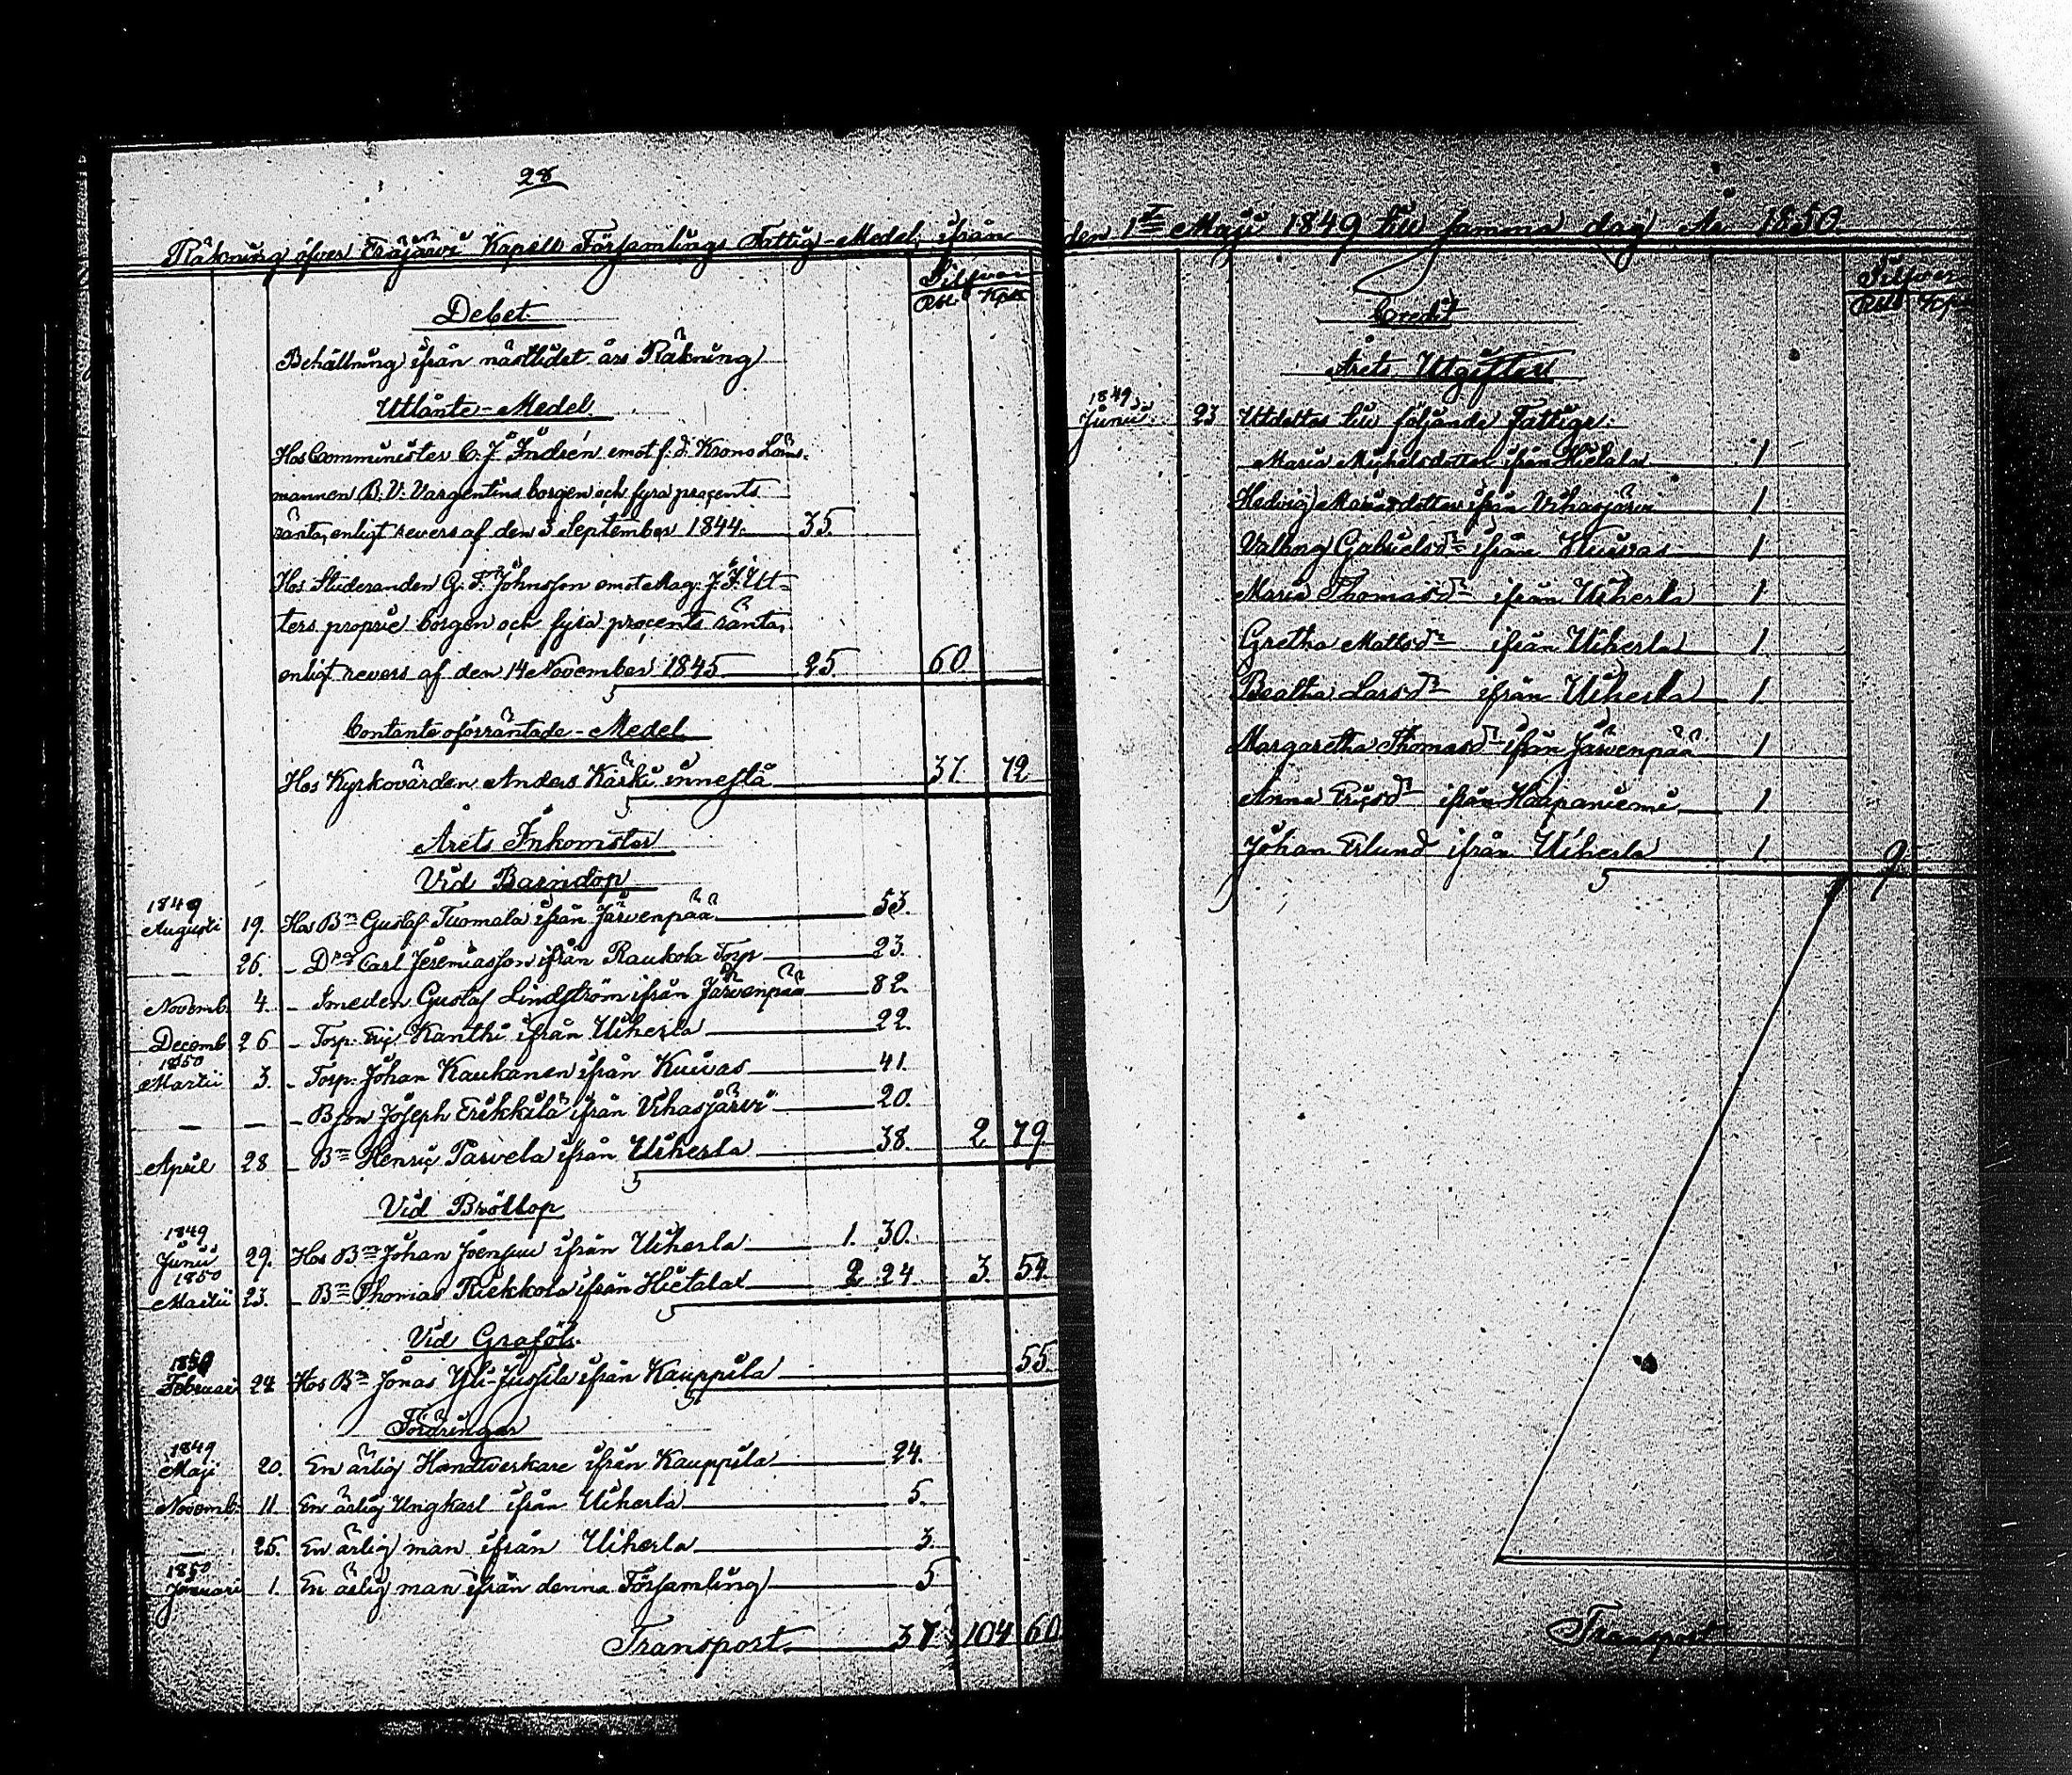 28
Räkning öfver Träjärvi Kapells Församlings Fattig-Medel, ifrån
Silfver
Rbl. Kpk
Debet
Behållning ifrån nästlidet års Räkning
Utlånte-Medel
Hos Comminister C. J. Indrén emot f. d. Krono Läns-
mannen B. V. Vargentins borgen och fyra procents
ränta, enligt revers af den 3 September 1844 35.
Hos Studeranden G. F. Johnsson emot Mag. J. F. Ut-
ters proprie borgen och fyra procents ränta,
enligt revers af den 14 November 1845 25 60
Contante oförräntade-Medel
Hos Kyrkovärden Anders Kärki innestå 37 72
Årets Inkomster
Vid Barndop
1849
Augusti 19. Hos Bn Gustaf Tuomala ifrån Järvenpää 53.
— 26. - Drg Carl Jeremiasson ifrån Raukola Torp 23.
Novemb. 4. - Smeden Gustaf Lindström ifrån Järvenpää 82.
Decemb. 26 - Torp. Eric Kanthi ifrån Uiherla 22.
1850
Martii 3. - Torp. Johan Kaukanen ifrån Kuivas 41.
— — - Bson Joseph Erikkilä ifrån Vihasjärvi 20.
April 28 - Bn Henric Parvela ifrån Uiherla 38. 2 79.
Vid Bröllop
1849
Junii 29. Hos Bn Johan Joensuu ifrån Uiherla 1. 30.
1850
Martii 23. - Bn Thomas Riekkola ifrån Hietala 2 24 3. 54.
Vid Graföl.
1850
Februari 24 Hos Bn Jonas Yli-Jussila ifrån Kauppila 55.
Föräringar
1849
Maji 20. En ärlig Handtverkare ifrån Kauppila 24.
Novemb. 11 En ärlig Ungkarl ifrån Uiherla 5.
— 25. En ärlig man ifrån Uiherla 3.
1850
Januari 1. En ärlig man ifrån denna Församling 5
Transport 37 104 60
den 1sta Maji 1849 till samma dag År 1850.
Silfver
Rbl Kpk
Credit
Årets Utgifter
1849
Junii 23 Utdeltes till följande Fattige:
Maria Michelsdotter ifrån Hietala 1
Hedvig Mariasdotter ifrån Vihasjärvi 1
Valborg Gabrielsdr ifrån Kuivas 1
Maria Thomasdr ifrån Uiherla 1
Gretha Mattsdr ifrån Uiherla 1
Beatha Larsdr ifrån Uiherla 1
Margaretha Thomasdr ifrån Järvenpää 1
Anna Ericsdr ifrån Haapaniemi 1
Johan Erlund ifrån Uiherla 1 9
Transport